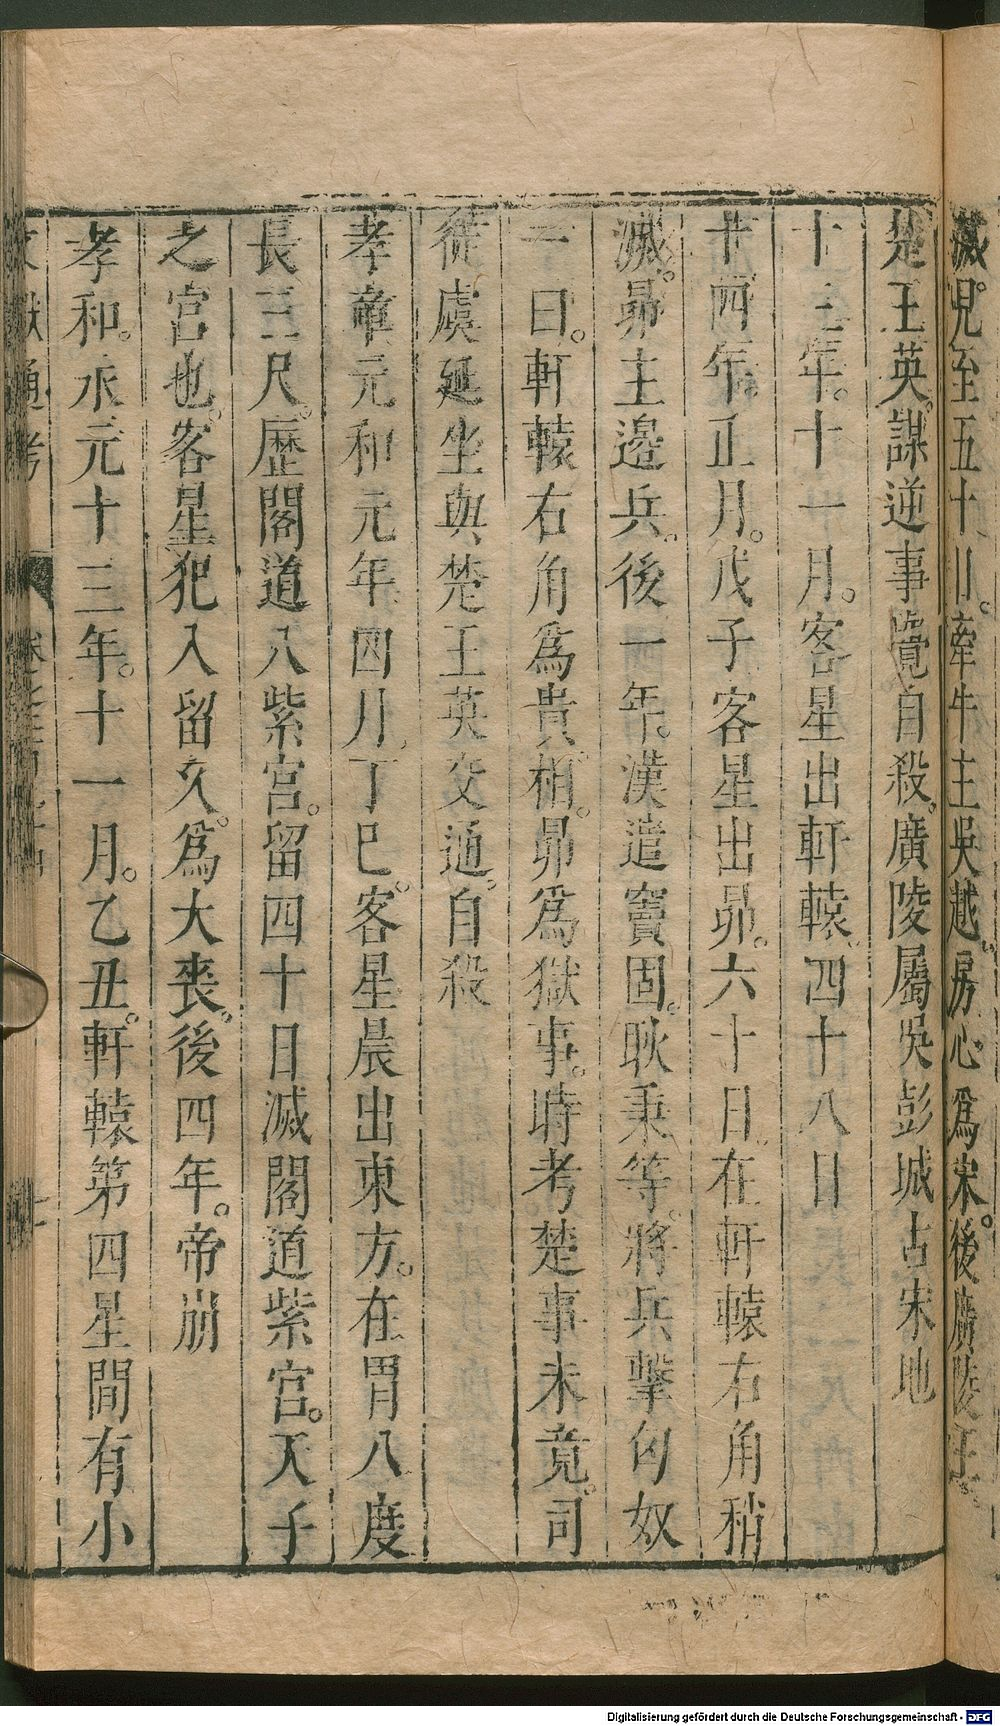 滅見至五十日。牽牛主吳越。房心爲宋。後廣陵王
楚王英。謀逆事覺自殺。廣陵屬吳彭城古宋地
十三年。十一月。客星出軒轅。四十八日
十四年。正月。戊子客星出昴。六十日。在軒轅右角稍
滅。昴主邊兵。後一年。漢遣竇固。耿秉等。將兵擊匈奴
一曰。軒轅右角爲貴相。昴爲獄事。時考楚事未竟。司
徒虞延坐與楚王英交通。自殺
孝章元和元年四月。丁巳。客星晨出東方。在胃八度
長三尺。歷閣道入紫宮。留四十日滅閣道紫宮。天子
之宮也。客星犯入留久。爲大喪。後四年。帝崩
孝和。永元十三年。十一月。乙丑。軒轅第四星間有小
文獻通考
Digitalisierung gefördert durch die Deutsche Forschungsgemeinschaft - DFG